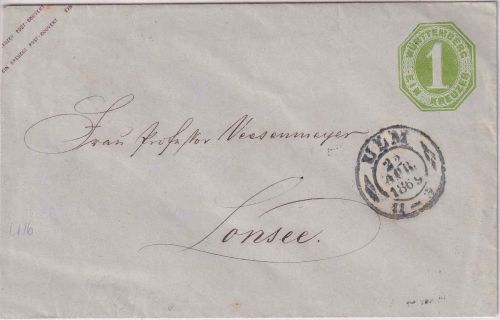 EIN KREUZER POST-COUVERT
EIN KREUZER POST-COUVERT
EIN
WÜRTTEMBERG
1
EIN KREUZER
Frau Professor Veesenmeyer
ULM
22
APR.
1869
Lonsee.
1.116